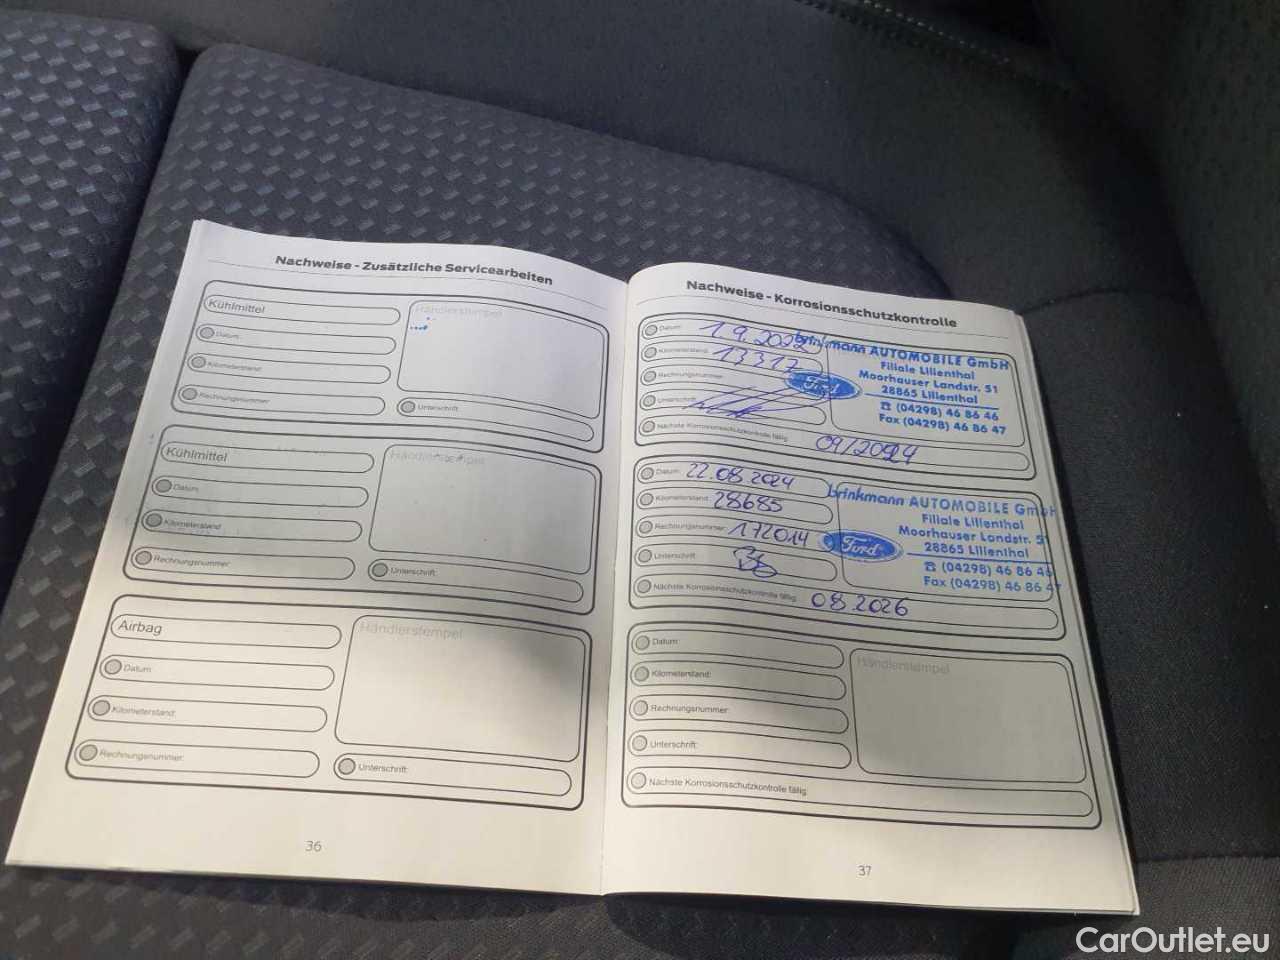 Nachweise - Zusätzliche Servicearbeiten
Kühlmittel
Händlerstempel
Datum:
Kilometerstand:
Rechnungsnummer:
Unterschrift:
Kühlmittel
Händlerstempel
Datum:
Kilometerstand:
Rechnungsnummer:
Unterschrift:
Airbag
Händlerstempel
Datum:
Kilometerstand:
Rechnungsnummer:
Unterschrift:
36
Nachweise - Korrosionsschutzkontrolle
Datum: 1.9.2022
Kilometerstand: 13317
Rechnungsnummer:
Unterschrift:
Nächste Korrosionsschutzkontrolle fällig: 09/2024
brinkmann AUTOMOBILE GmbH
Filiale Lilienthal
Moorhauser Landstr. 51
28865 Lilienthal
☎ (04298) 46 86 46
Fax (04298) 46 86 47
Ford
Datum: 22.08.2024
Kilometerstand: 28685
Rechnungsnummer: 172014
Unterschrift:
Nächste Korrosionsschutzkontrolle fällig: 08.2026
brinkmann AUTOMOBILE GmbH
Filiale Lilienthal
Moorhauser Landstr. 51
28865 Lilienthal
☎ (04298) 46 86 46
Fax (04298) 46 86 47
Ford
Datum:
Händlerstempel
Kilometerstand:
Rechnungsnummer:
Unterschrift:
Nächste Korrosionsschutzkontrolle fällig:
37
CarOutlet.eu